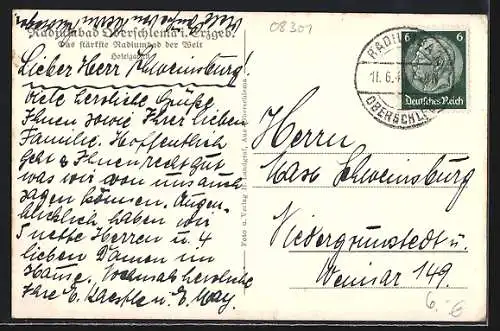 08301
Radiumbad Oberschlema i. Erzgeb.
Das stärkste Radiumbad der Welt
Lieber Herr Schweinsburg!
Viele herzliche Grüße
Ihnen sowie Ihrer lieben
Familie. Hoffentlich
geht es Ihnen recht gut
was wir von uns auch
sagen können. Augen-
blicklich haben wir
5 nette Herren u. 4
lieben Damen im
Hause. Nochmals herzliche
Ihre E. u. E. May.
Foto u. Verlag Aue
RADIUMBAD
11.6.4
OBERSCHLEMA
6 6
Deutsches Reich
Herrn
Max Schweinsburg
Niedergrunstedt u.
Weimar 149.
6.- €